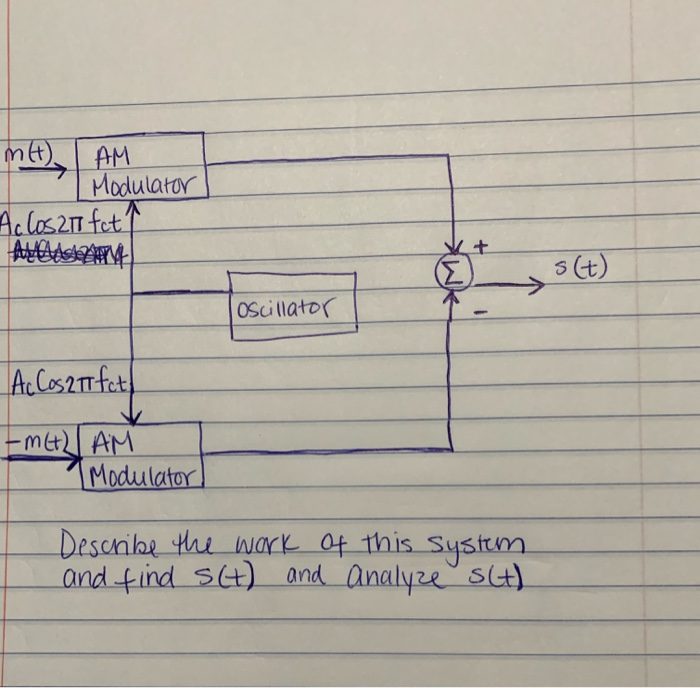 m(t)
AM
Modulator
Ac Cos2πfct
+
Σ
s(t)
oscillator
-
Ac Cos2πfct
-m(t)
AM
Modulator
Describe the work of this system
and find s(t) and analyze s(t)